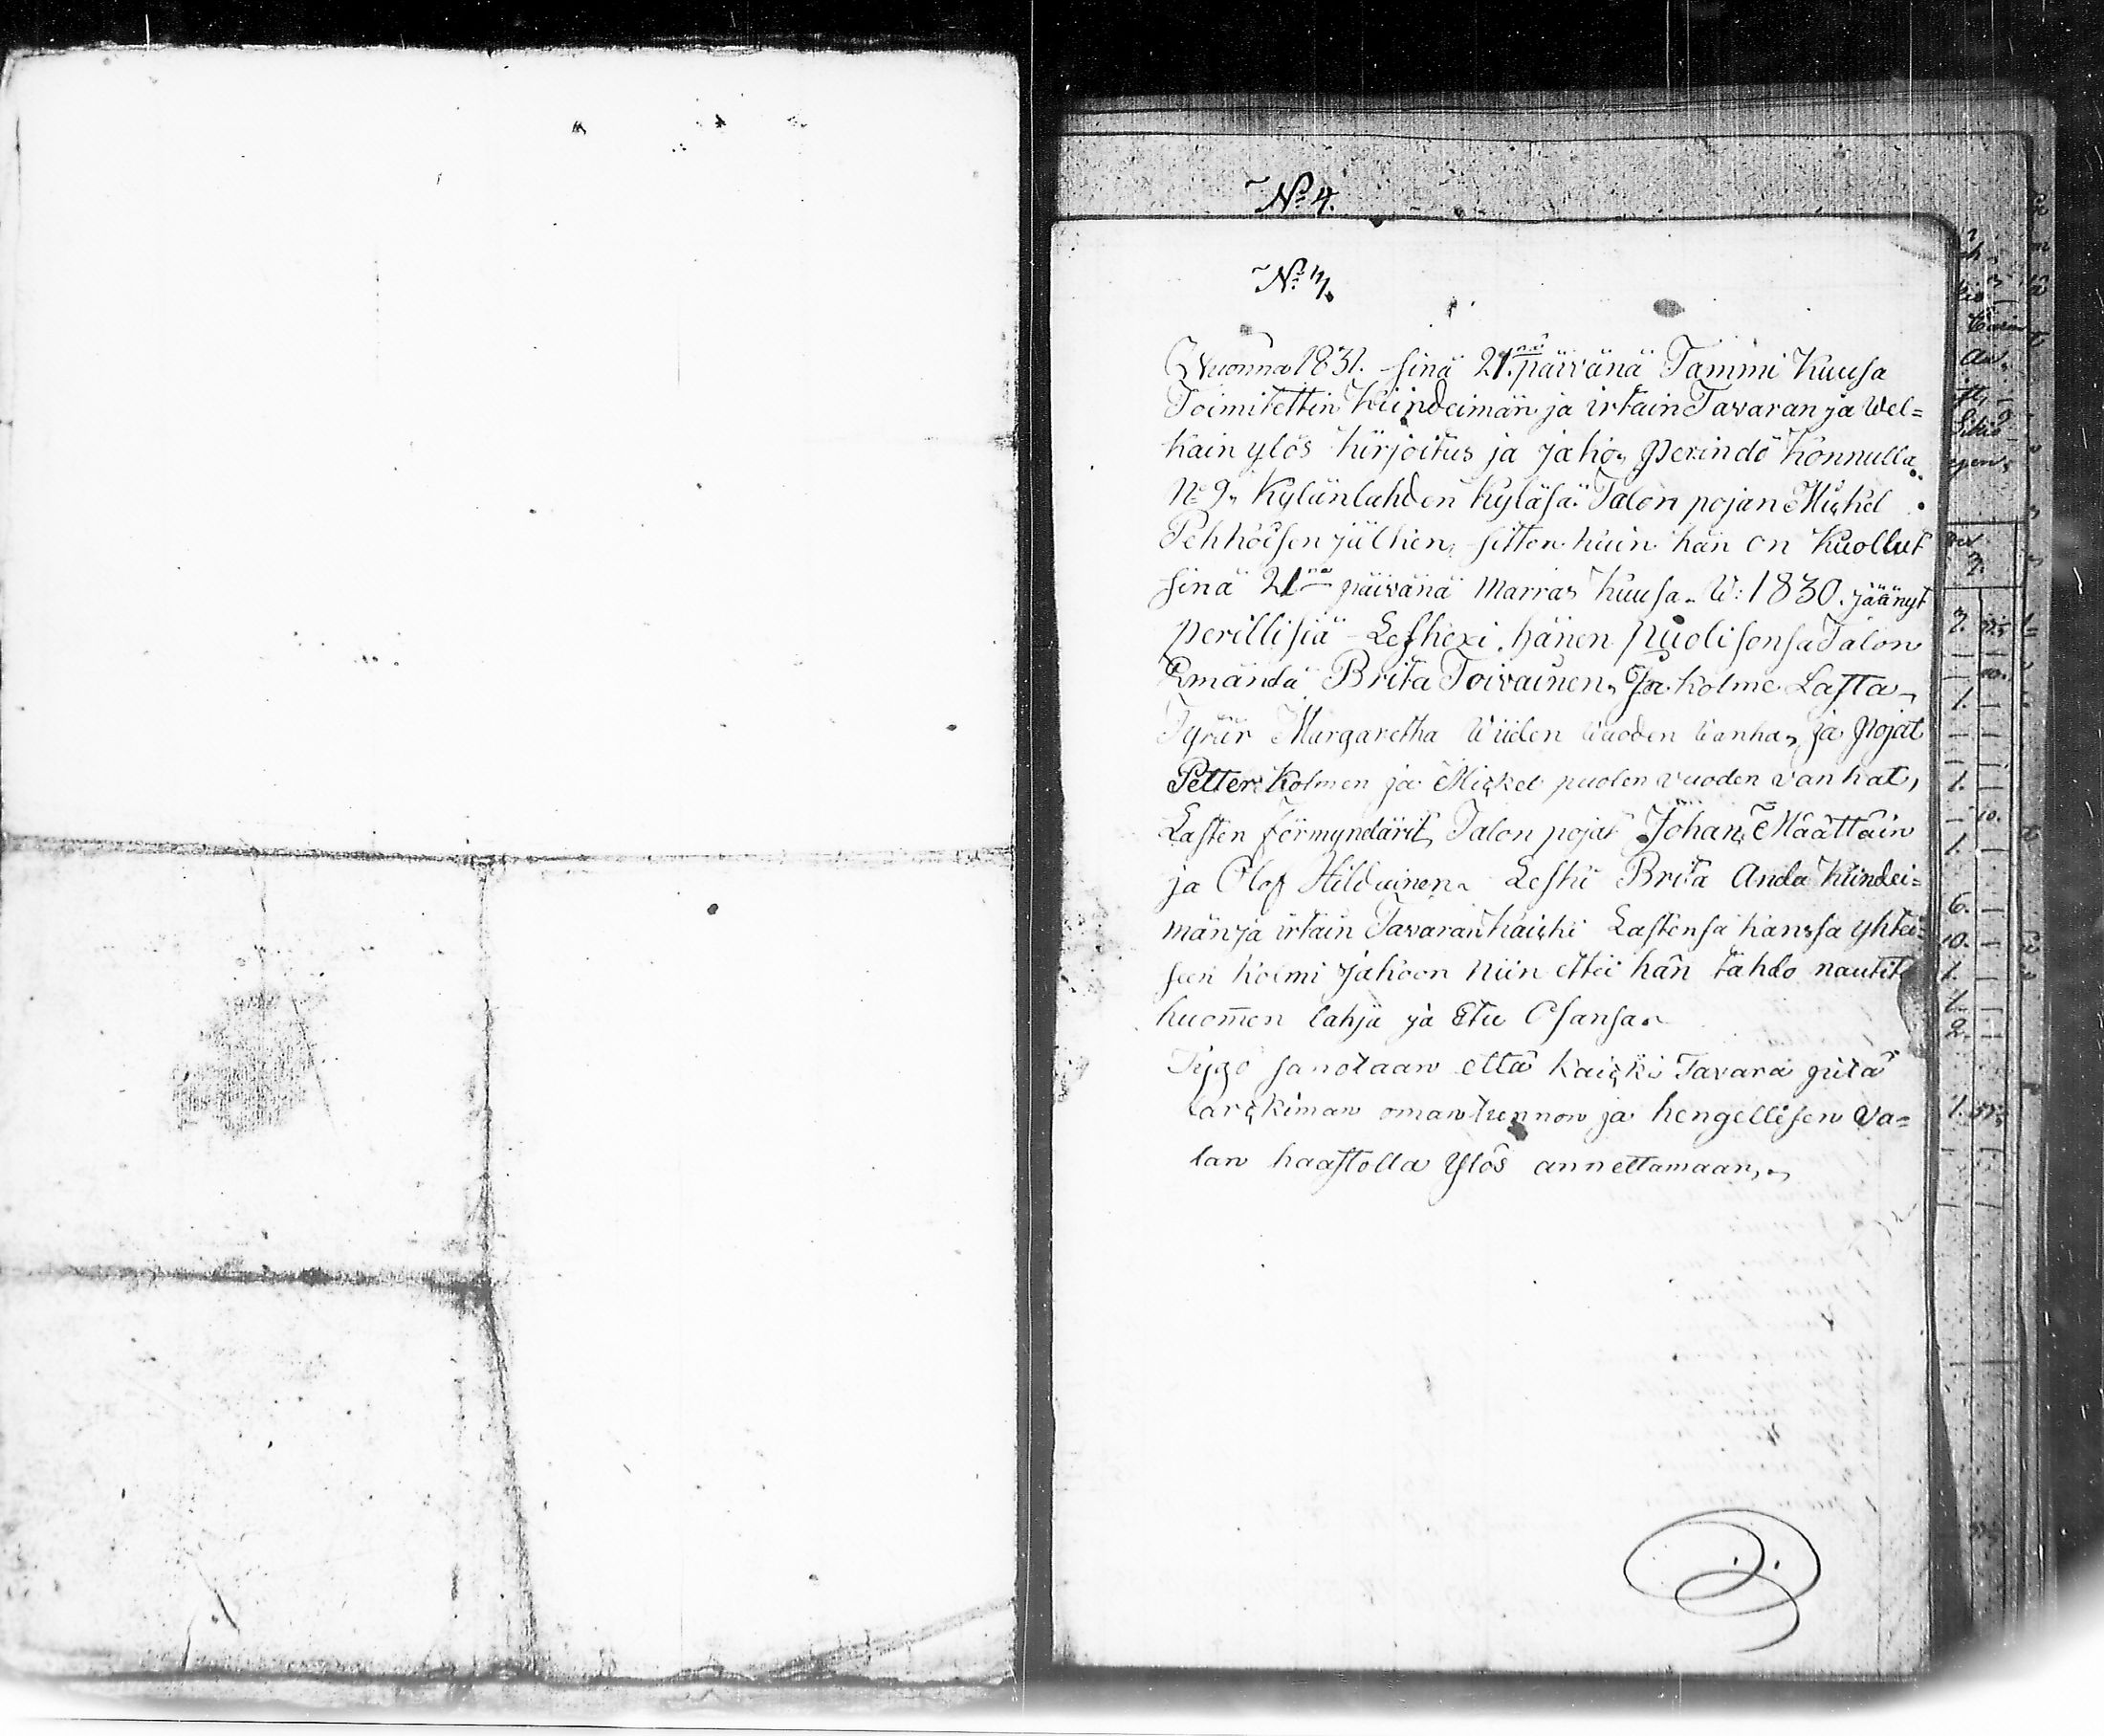 No 4.
No 4.
Wuonna 1831. sinä 21.nä päivänä Tammi Kuusa
Toimitettin Kiindeimän ja irtain Tavaran ja Wel=
kain ylös kirjoitus ja jako, Perindö Konnulla
No 9. Kylänlahden Kyläsä. Talon pojan Mickel
Pehkosen jälkien, sitten kuin hän on Kuollut
sinä 21nä päivänä Marras Kuusa. W: 1830. jäänyt
perillisiä Leskexi hänen puolisonsa Talon
Emändä Brita Toivainen, Ja kolme Lasta,
Tytär Margaretha Wiiden Wuoden Wanha, ja pojat
Petter Kolmen ja Mickel puolen vuoden vanhat,
Lasten Förmyndärit, Talon pojat Johan Määttäin
ja Olof Hilduinen. Leski Brita Anda Kiindei=
män ja irtain Tavaran kaicki Lastensa kanssa yhtei=
seen kolmi jakoon niin ettei hän tahdo nautit
huomen lahja ja Etu Osansa.
Tygö sanotaan että kaicki Tavara pitä
tarckiman oman tunnon ja hengellisen Va=
lan haastolla Ylös annettamaan,.